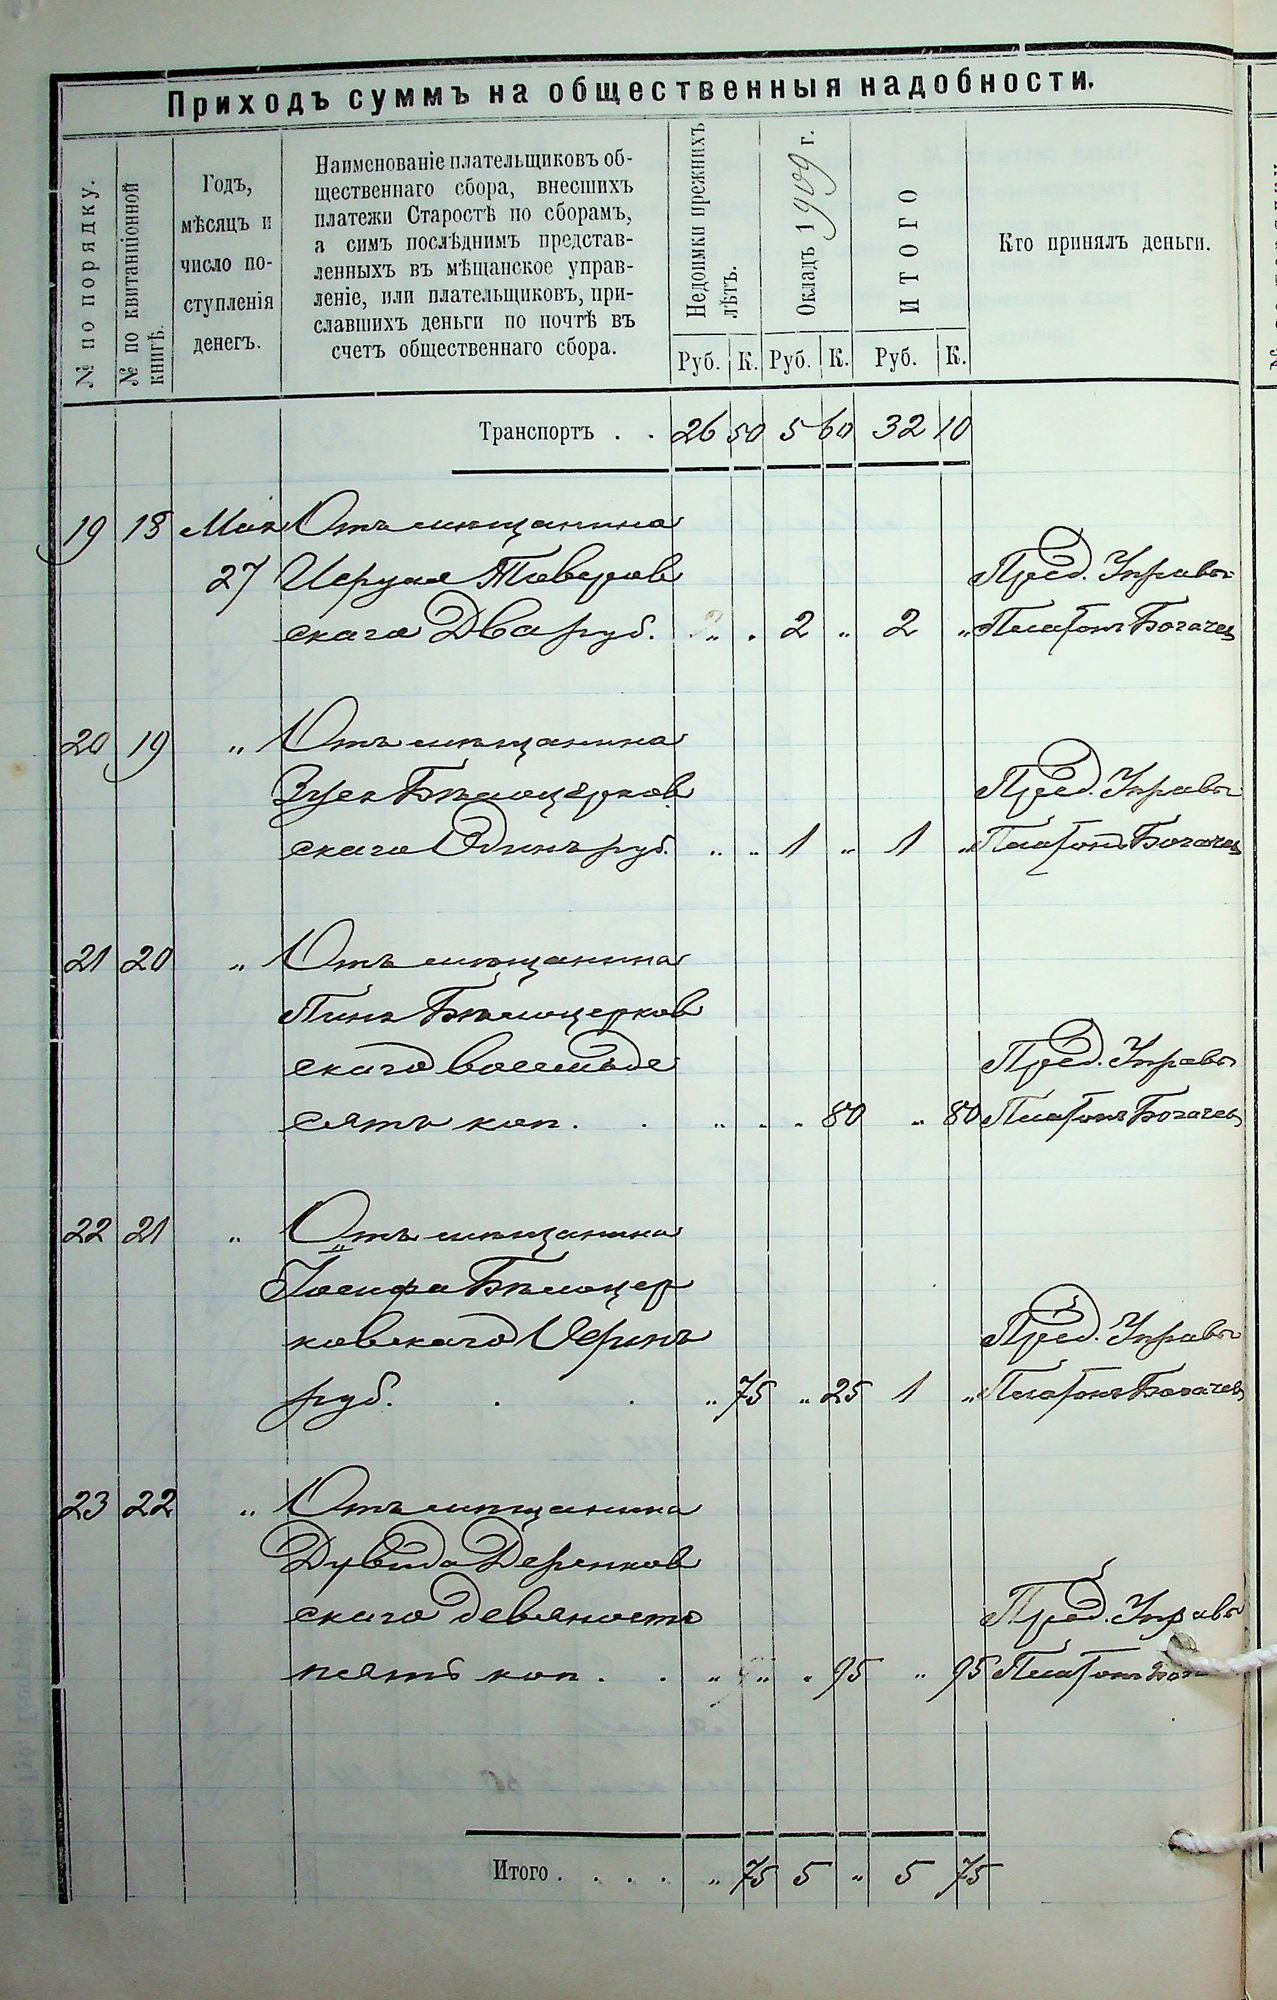 Приходъ суммъ на общественныя надобности.
№ по порядку.
№ по квитанціонной книгѣ.
Годъ,
мѣсяцъ и
число по-
ступленія
денегъ.
Наименованіе плательщиковъ об-
щественнаго сбора, внесшихъ
платежи Старостѣ по сборамъ,
а симъ послѣднимъ представ-
ленныхъ въ мѣщанское управ-
леніе, или плательщиковъ, при-
славшихъ деньги по почтѣ въ
счетъ общественнаго сбора.
Недоимки прежнихъ лѣтъ.
Окладъ 1909 г.
ИТОГО
Кто принялъ деньги.
Руб. К. Руб. К. Руб. К.
Транспортъ . . 26 50 5 60 32 10
19 18 Мая Отъ мѣщанина
27 Пред. Управы
скаго Два руб. „ „ 2 „ 2 „ Платонъ Богачев
20 19 „ Отъ мѣщанина
Зуся Бѣлоцерков Пред. Управы
скаго Одинъ руб. „ „ 1 „ 1 „ Платонъ Богачев
21 20 „ Отъ мѣщанина
Бѣлоцерков
скаго восемьде Пред. Управы
сятъ коп. . „ . „ 80 „ 80 Платонъ Богачев
22 21 „ Отъ мѣщанина
Іосифа Бѣлоцер
ковскаго Одинъ Пред. Управы
руб. . . „ 75 „ 25 1 „ Платонъ Богачев
23 22 „ Отъ мѣщанина
Дувида Деренков
скаго девяносто Пред. Управы
пять коп. . . „ „ „ 95 „ 95 Платонъ
Итого . . . . „ 75 5 „ 5 75